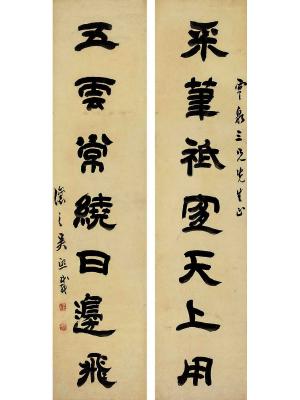 覃泉三兄先生正
采筆祗宜天上用
五雲常繞日邊飛
讓之吳熙載